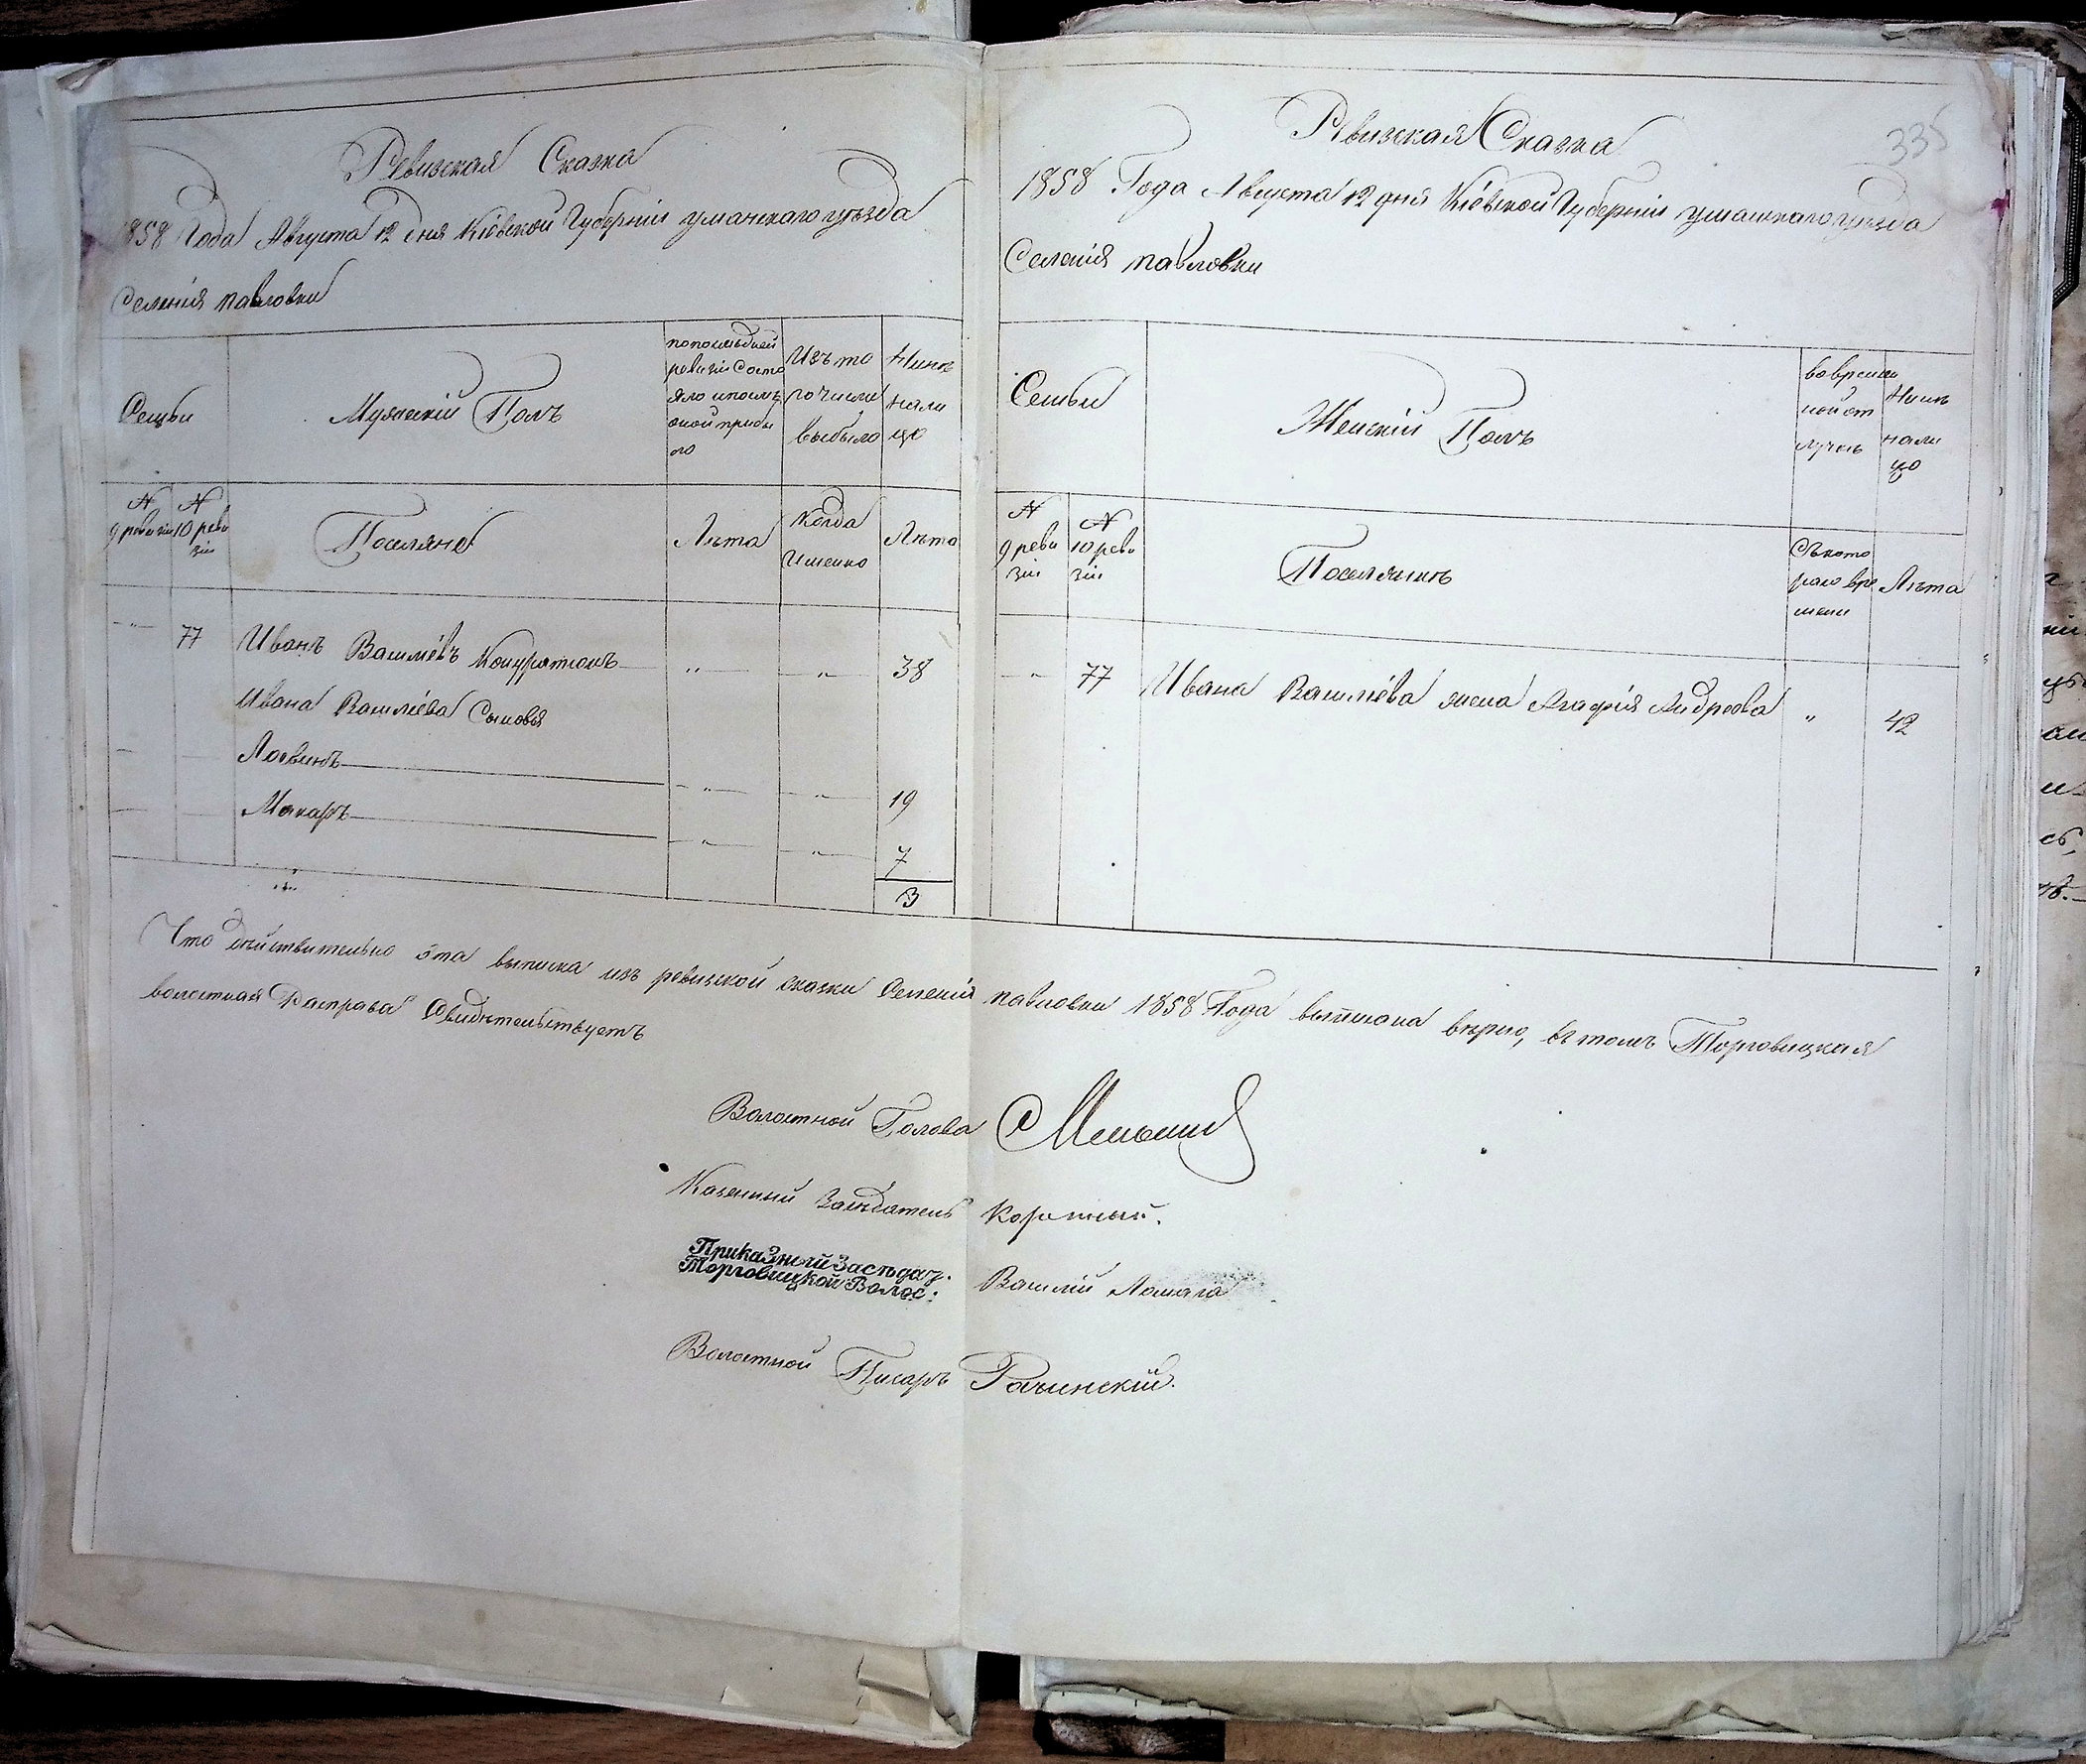 Ревизская Сказка
1858 Года Августа 12 дня Кіевской Губерніи уманскаго уѣзда
Селенія павловки
Семьи
Мужескій Полъ
по последней
ревизіи состо
яло и послѣ
оной прибы
ло
Изъ то
го числа
выбыло
Нинѣ
нали
цо
N
9 ревизіи
N
10 реви
зіи
Поселяне
Лѣта
Когда
именно
Лѣта
77 Иванъ Василіевъ Кондратюкъ 38
Ивана Василіева Сыновья
Логвинъ 19
Макаръ 7
3
Ревизская Сказка
335
1858 Года Августа 12 дня Кіевской Губерніи уманскаго уѣзда
Селенія павловки
Семьи
Женскій Полъ
во времен
ной от
лучкѣ
Нинѣ
нали
цо
N
9 реви
зіи
N
10 реви
зіи
Поселянкѣ
Съ кото
раго вре
мени
Лѣта
77 Ивана Василіева жена Агафія Андреева 42
Что дѣйствительно эта выписка изъ ревизской сказки Селенія павловки 1858 Года выписана вѣрно, въ томъ Торговицкая
волостная Расправа Свидѣтельствуетъ
Волостной Голова
Казенный Засѣдатель Коротный.
Приказный Засѣдат.
Торговицкой Волос:
Василій
Волостной Писарь Рачинскій.